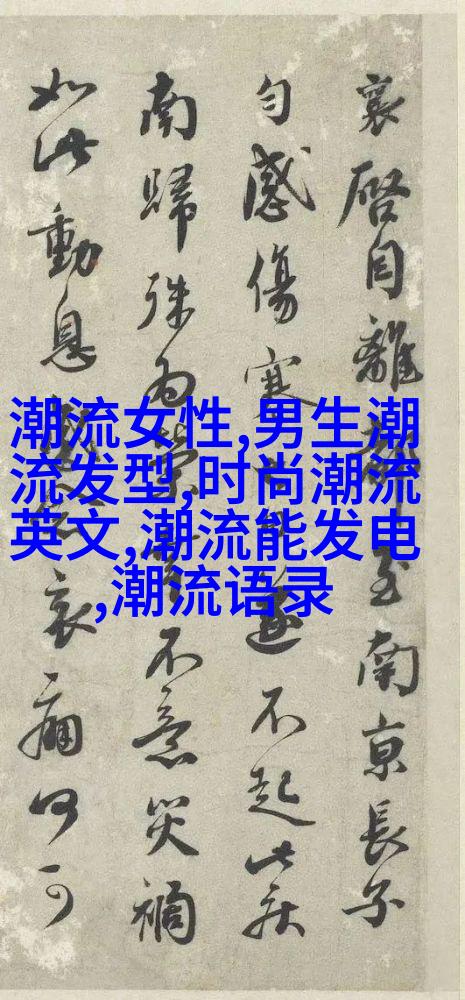 襄啓自離至南京長子
匀感傷寒不起此疾
南歸殊為不意災禍
如此動息哀痛何可
潮流女性,男生潮
流发型,时尚潮流
英文,潮流能发电
,潮流语录